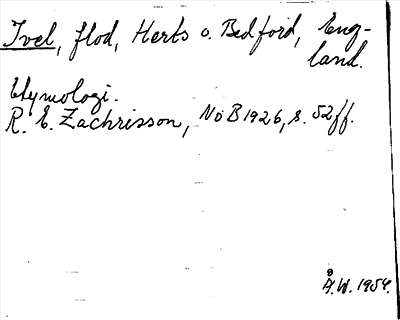 Ivel, flod, Herts o. Bedford, Eng-
land.
Etymologi.
R. E. Zachrisson, NoB 1926, s. 52 ff.
Å.W. 1954.